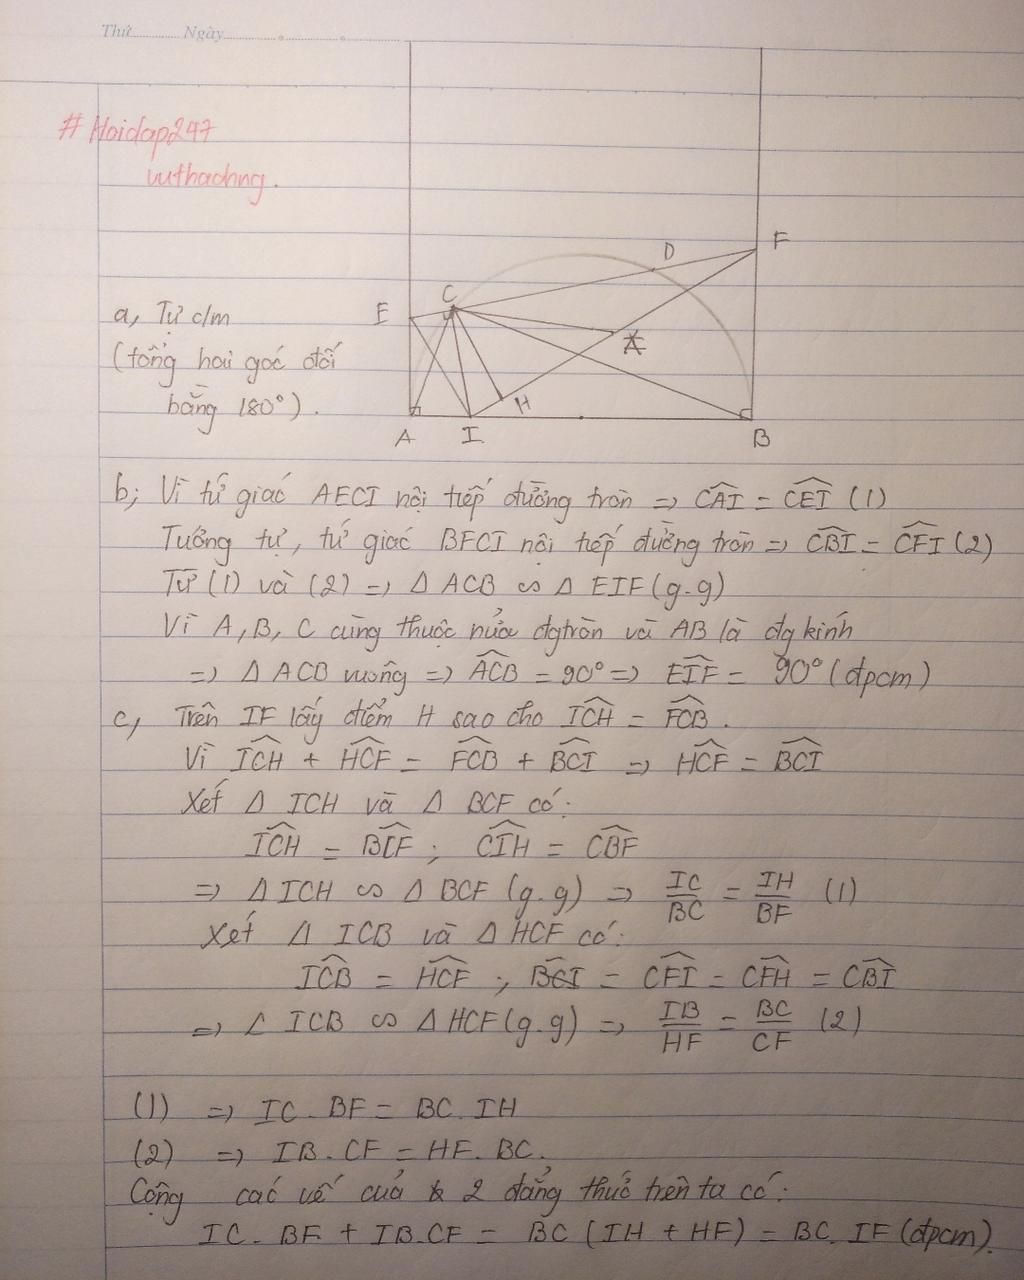 Thứ............ Ngày...........................
# Hoidap247
vuthachng.
E
C
D
F
A
I
H
B
a, Tự c/m
(tổng hai góc đối
bằng 180°).
b; Vì tứ giác AECI nội tiếp đường tròn => \widehat{CAI} = \widehat{CEI} (1)
Tương tự, tứ giác BFCI nội tiếp đường tròn => \widehat{CBI} = \widehat{CFI} (2)
Từ (1) và (2) => Δ ACB ∽ Δ EIF (g.g)
Vì A, B, C cùng thuộc nửa đgtròn và AB là đg kính
=> Δ ACB vuông => \widehat{ACB} = 90° => \widehat{EIF} = 90° (đpcm)
c, Trên IF lấy điểm H sao cho \widehat{ICH} = \widehat{FCB}.
Vì \widehat{ICH} + \widehat{HCF} = \widehat{FCB} + \widehat{BCI} => \widehat{HCF} = \widehat{BCI}
Xét Δ ICH và Δ BCF có:
\widehat{ICH} = \widehat{BCF} ; \widehat{CIH} = \widehat{CBF}
=> Δ ICH ∽ Δ BCF (g.g) => IC/BC = IH/BF (1)
Xét Δ ICB và Δ HCF có:
\widehat{ICB} = \widehat{HCF} ; \widehat{BCI} = \widehat{CFI} = \widehat{CFH} = \widehat{CBI}
=> Δ ICB ∽ Δ HCF (g.g) => IB/HF = BC/CF (2)
(1) => IC.BF = BC.IH
(2) => IB.CF = HF.BC.
Cộng các vế của 2 đẳng thức trên ta có:
IC.BF + IB.CF = BC (IH + HF) = BC.IF (đpcm).